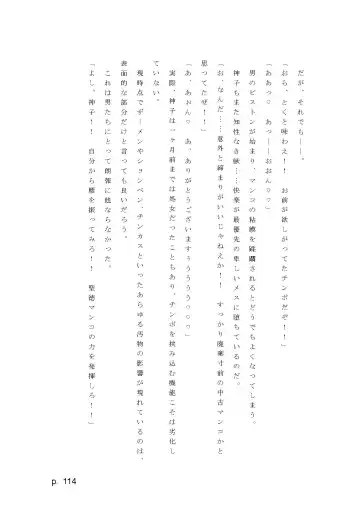 だが、それでも――。
「おら、とくと味わえ！　お前が欲しがってたチンポだぜ！！」
「ああっ♡　あっ――おおん♡♡」
男のピストンが始まり、マンコの粘膜を蹂躙されるとどうでもよくなってしまう。
神子もまた知性なき獣……快楽が最優先の卑しいメスに堕ちているのだ。
「お、なんだ……意外と締まりがいいじゃねえか！！　すっかり廃棄寸前の中古マンコかと
思ってたぜ！！」
「あ、あぉん♡　あ、ありがとうございますううううう♡」
実際、神子は一ヶ月前までは処女だったこともあり、チンポを挟み込む機能こそは劣化し
ていない。
現時点でザーメンやションベン、チンカスといったあらゆる汚物の影響が現れているのは、
表面的な部分だけと言っても良いだろう。
これは男たちにとって朗報に他ならなかった。
「よし、神子！！　自分から腰を振ってみろ！！　聖徳マンコの力を発揮しろ！！」
p. 114